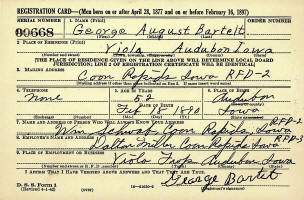 REGISTRATION CARD—(Men born on or after April 28, 1877 and on or before February 16, 1897)
SERIAL NUMBER 1. NAME (Print) ORDER NUMBER
U 0668 George August Bartelt
2. PLACE OF RESIDENCE (Print)
Viola Audubon Iowa
[THE PLACE OF RESIDENCE GIVEN ON THE LINE ABOVE WILL DETERMINE LOCAL BOARD
JURISDICTION; LINE 2 OF REGISTRATION CERTIFICATE WILL BE IDENTICAL]
3. MAILING ADDRESS
Coon Rapids Iowa RFD-2
4. TELEPHONE 5. AGE IN YEARS 6. PLACE OF BIRTH
none 52 Audubon
DATE OF BIRTH
Feb 18 1890 Iowa
7. NAME AND ADDRESS OF PERSON WHO WILL ALWAYS KNOW YOUR ADDRESS RFD-2
Wm Schwab Coon Rapids, Iowa
8. EMPLOYER'S NAME AND ADDRESS RFD-3
Dalton Miller Coon Rapids Iowa
9. PLACE OF EMPLOYMENT OR BUSINESS
Viola Twp Audubon Iowa
I AFFIRM THAT I HAVE VERIFIED ABOVE ANSWERS AND THAT THEY ARE TRUE.
D. S. S. Form 1
(Revised 4-1-42) (over) George Bartelt